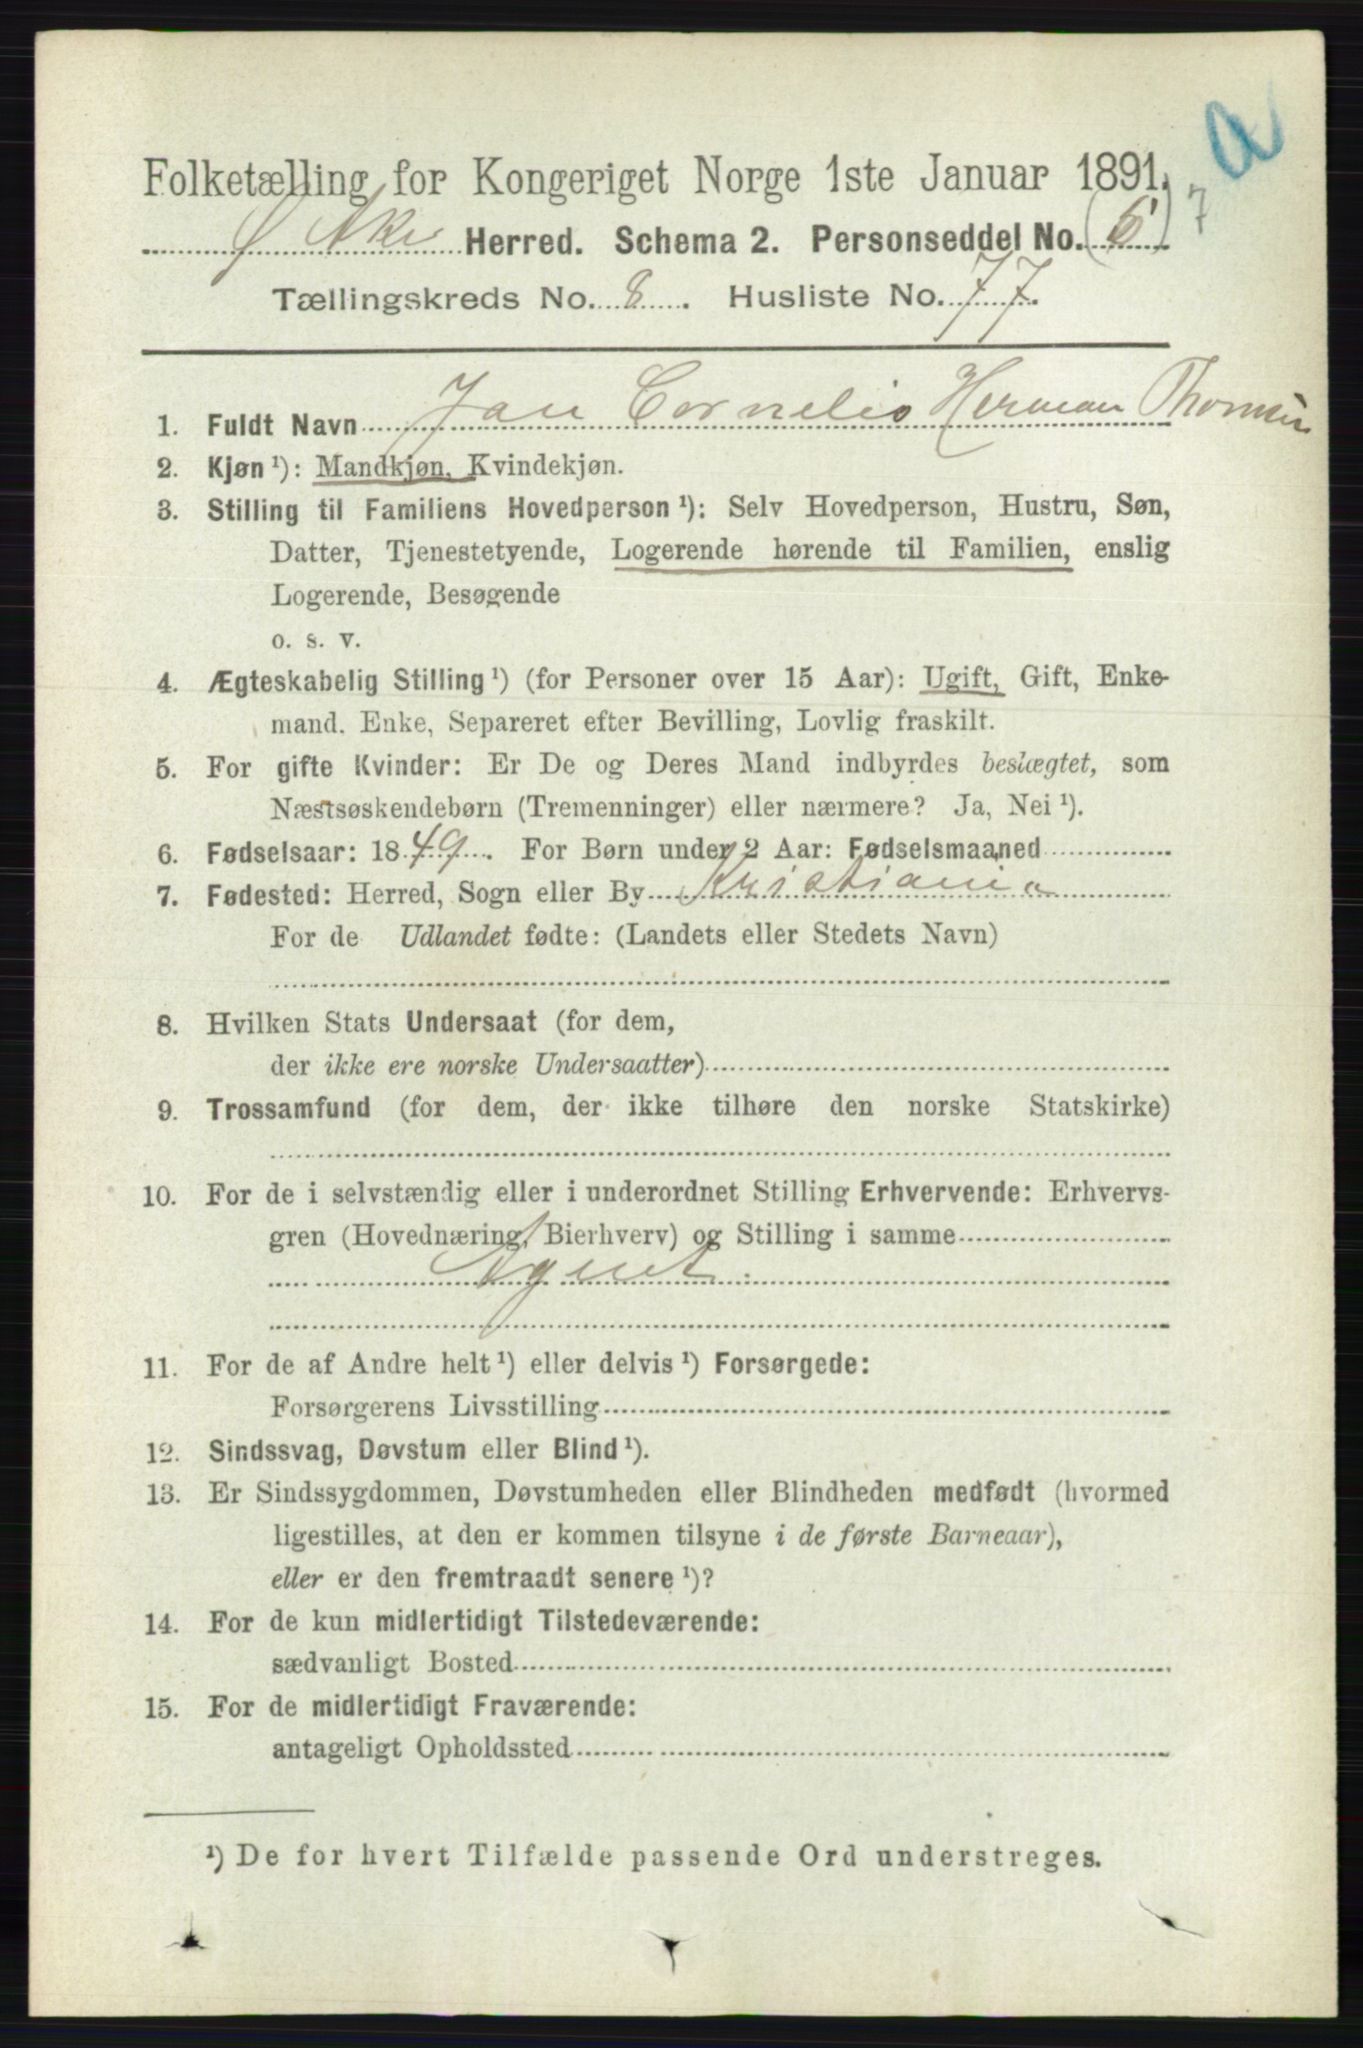 a
Folketælling for Kongeriget Norge 1ste Januar 1891.
Ø Aker Herred. Schema 2. Personseddel No. (6) 7
Tællingskreds No. 8. Husliste No. 77.
1. Fuldt Navn Jan Cornelis Herman
2. Kjøn ¹): Mandkjøn, Kvindekjøn.
3. Stilling til Familiens Hovedperson ¹): Selv Hovedperson, Hustru, Søn,
Datter, Tjenestetyende, Logerende hørende til Familien, enslig
Logerende, Besøgende
o. s. v.
4. Ægteskabelig Stilling ¹) (for Personer over 15 Aar): Ugift, Gift, Enke-
mand. Enke, Separeret efter Bevilling, Lovlig fraskilt.
5. For gifte Kvinder: Er De og Deres Mand indbyrdes beslægtet, som
Næstsøskendebørn (Tremenninger) eller nærmere? Ja, Nei ¹).
6. Fødselsaar: 1849. For Børn under 2 Aar: Fødselsmaaned
7. Fødested: Herred, Sogn eller By Kristiania
For de Udlandet fødte: (Landets eller Stedets Navn)
8. Hvilken Stats Undersaat (for dem,
der ikke ere norske Undersaatter)
9. Trossamfund (for dem, der ikke tilhøre den norske Statskirke)
10. For de i selvstændig eller i underordnet Stilling Erhvervende: Erhvervs-
gren (Hovednæring, Bierhverv) og Stilling i samme
Agent.
11. For de af Andre helt ¹) eller delvis ¹) Forsørgede:
Forsørgerens Livsstilling
12. Sindssvag, Døvstum eller Blind ¹).
13. Er Sindssygdommen, Døvstumheden eller Blindheden medfødt (hvormed
ligestilles, at den er kommen tilsyne i de første Barneaar),
eller er den fremtraadt senere ¹)?
14. For de kun midlertidigt Tilstedeværende:
sædvanligt Bosted
15. For de midlertidigt Fraværende:
antageligt Opholdssted
¹) De for hvert Tilfælde passende Ord understreges.